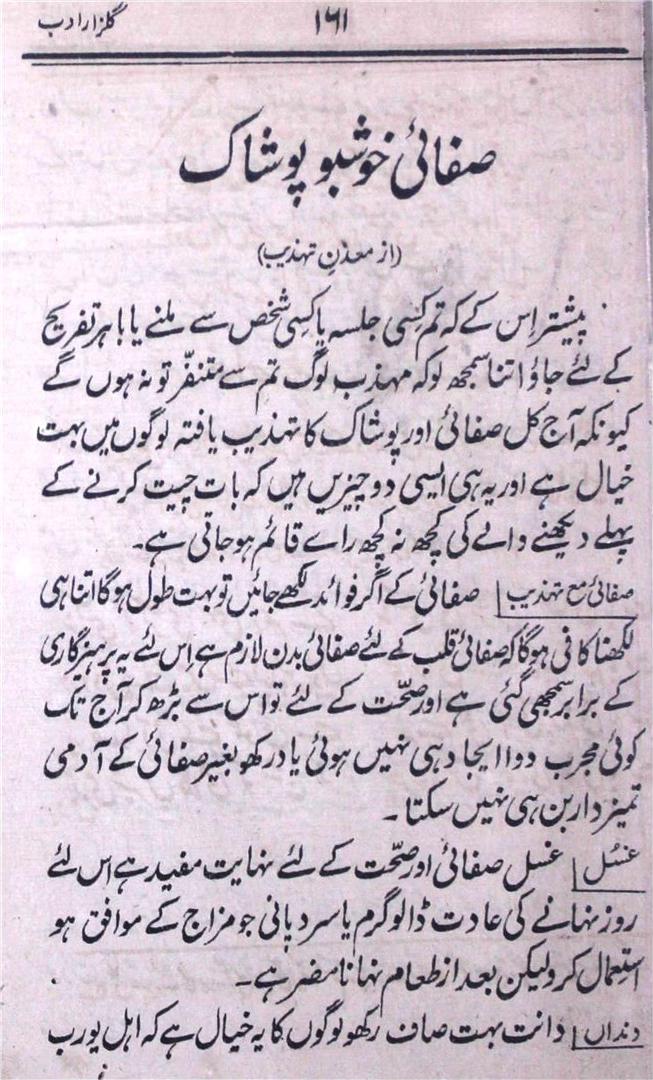 گلزار ادب
۱۶۱
صفائی خوشبو پوشاک
(از معدنِ تہذیب)
پیشتر اِس کے کہ تم کِسی جلسہ یا کِسی شخص سے ملنے یا باہر تفریح
کے لئے جاؤ اتنا سمجھ لو کہ مہذب لوگ تم سے متنفّر تو نہ ہوں گے
کیونکہ آج کل صفائی اور پوشاک کا تہذیب یافتہ لوگوں میں بہت
خیال ہے اور یہ ہی ایسی دو چیزیں ہیں کہ بات چیت کرنے کے
پہلے دیکھنے والے کی کچھ نہ کچھ راے قائم ہوجاتی ہے۔
صفائی مع تہذیب صفائی کے اگر فوائد لکھے جائیں تو بہت طول ہوگا اتنا ہی
لکھنا کافی ہوگا کہ صفائی قلب کے لئے صفائی بدن لازم ہے اِس لئے یہ پرہیزگاری
کے برابر سمجھی گئی ہے اور صحّت کے لئے تو اس سے بڑھ کر آج تک
کوئی مجرب دوا ایجاد ہی نہیں ہوئی یاد رکھو بغیر صفائی کے آدمی
تمیزدار بن ہی نہیں سکتا۔
غسُل غسل صفائی اور صحّت کے لئے نہایت مفید ہے اس لئے
روز نہانے کی عادت ڈالو گرم یا سرد پانی جو مزاج کے موافق ہو
استِعمال کرو لیکن بعد از طعام نہانا مضر ہے۔
دنداں دانت بہت صاف رکھو لوگوں کا یہ خیال ہے کہ اہل یورپ